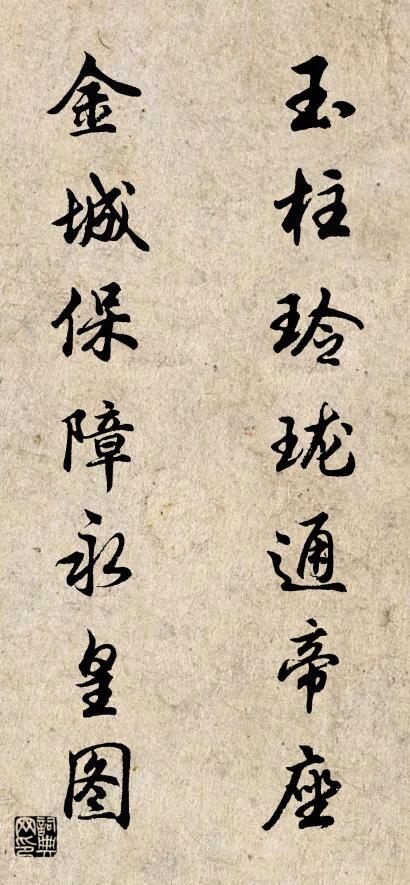 玉柱玲珑通帝座
金城保障永皇图
詞典网印